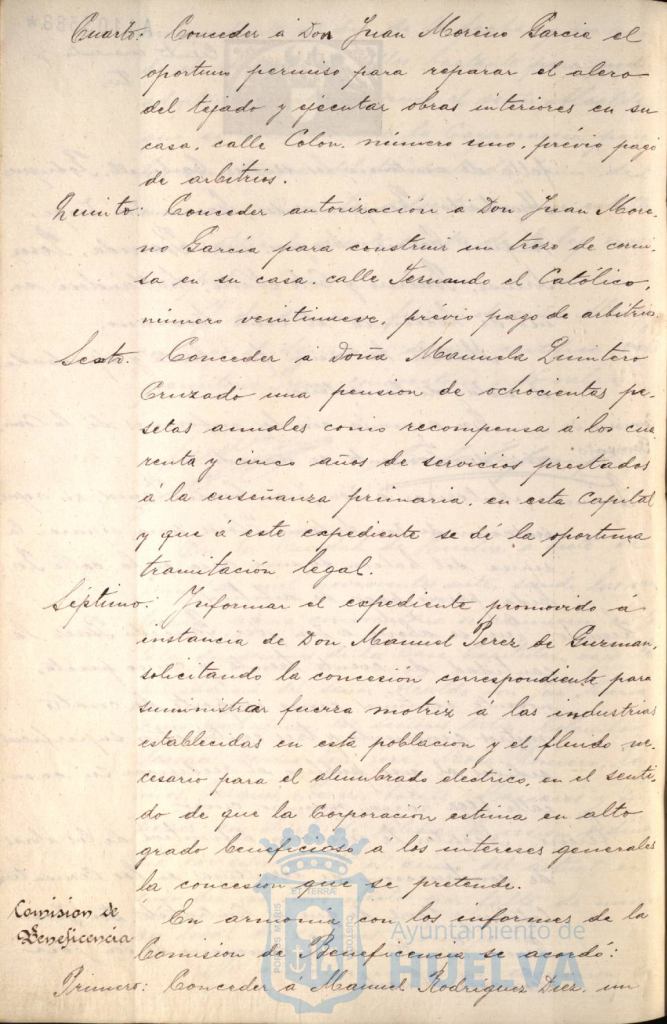 Cuarto: Conceder á Don Juan Moreno Garcia el
oportuno permiso para reparar el alero
del tejado y ejecutar obras interiores en su
casa, calle Colon, número uno, prévio pago
de arbitrios.
Quinto: Conceder autorización á Don Juan More-
no García para construir un trozo de corni-
sa en su casa, calle Fernando el Católico,
número veintinueve, prévio pago de arbitrios.
Sexto. Conceder á Doña Manuela Quintero
Cruzado una pension de ochocientas pe-
setas anuales como recompensa á los cua
renta y cinco años de servicios prestados
á la enseñanza primaria, en esta Capital
y que á este expediente se dé la oportuna
tramitación legal.
Séptimo: Informar el expediente promovido á
instancia de Don Manuel Perez de Guzman,
solicitando la concesión correspondiente para
suministrar fuerza motriz á las industrias
establecidas en esta poblacion y el fluido ne-
cesario para el alumbrado electrico, en el senti-
do de que la Corporación estima en alto
grado beneficioso á los intereses generales
la concesion que se pretende.
Comision de
Beneficencia
En armonia con los informes de la
Comision de Beneficencia se acordó:
Primero: Conceder á Manuel Rodriguez Diez, un
Ayuntamiento de
HUELVA
PORTUS MARIS ET TERRÆ CUSTODIA